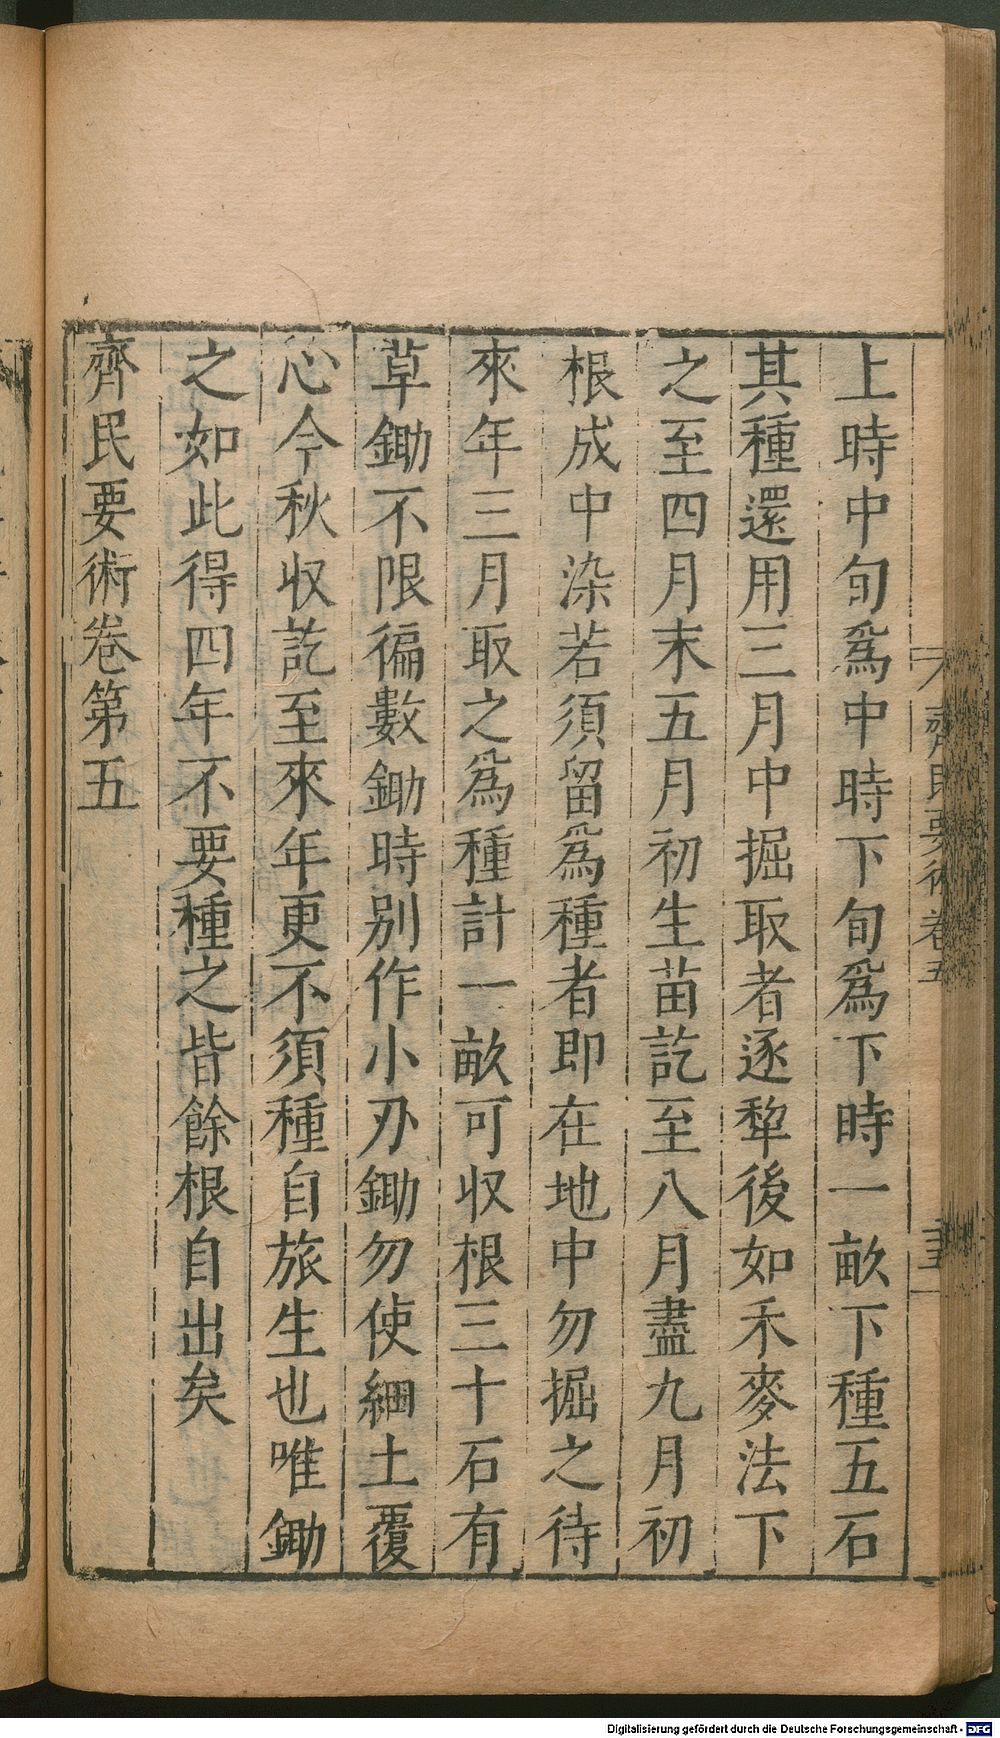 上時中旬爲中時下旬爲下時一畝下種五石
其種還用三月中掘取者逐犂後如禾麥法下
之至四月末五月初生苗訖至八月盡九月初
根成中染若須留爲種者即在地中勿掘之待
來年三月取之爲種計一畝可収根三十石有
草鋤不限徧數鋤時別作小刃鋤勿使細土覆
心今秋収訖至來年更不須種自旅生也唯鋤
之如此得四年不要種之皆餘根自出矣
齊民要術卷第五
齊民要術卷五
Digitalisierung gefördert durch die Deutsche Forschungsgemeinschaft - DFG